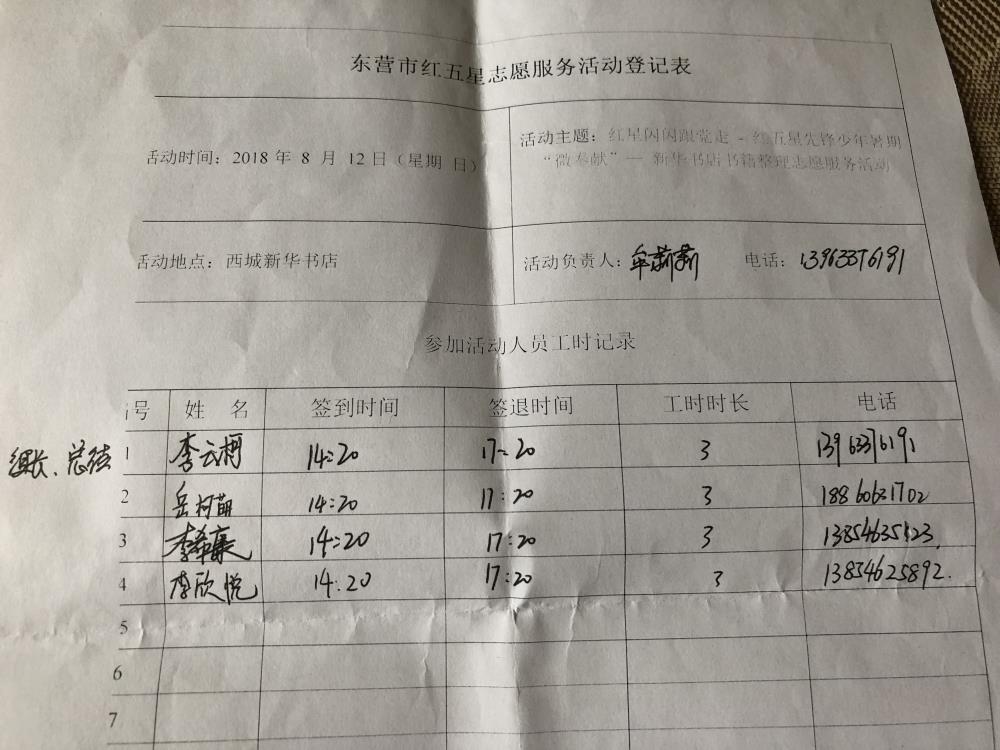 东营市红五星志愿服务活动登记表
活动时间：2018 年 8 月 12 日（星期 日）
活动主题：红星闪闪跟党走 - 红五星先锋少年暑期
“微奉献”— 新华书店书籍整理志愿服务活动
活动地点：西城新华书店
活动负责人：牟 电话：13963376191
参加活动人员工时记录
号 姓 名 签到时间 签退时间 工时时长 电话
组长、总结 1 李云 14:20 17:20 3 13963376191
2 岳柯萌 14:20 17:20 3 18860631702
3 李希 14:20 17:20 3
4 李欣悦 14:20 17:20 3 13854625892.
5
6
7